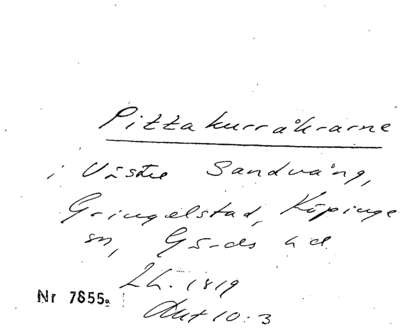 Pittakurråkrarne
i Västre Sandvång,
Gringelstad, Köpinge
sn, Gärds hd.
LH. 1819
Akt 10:3
Nr 7855.